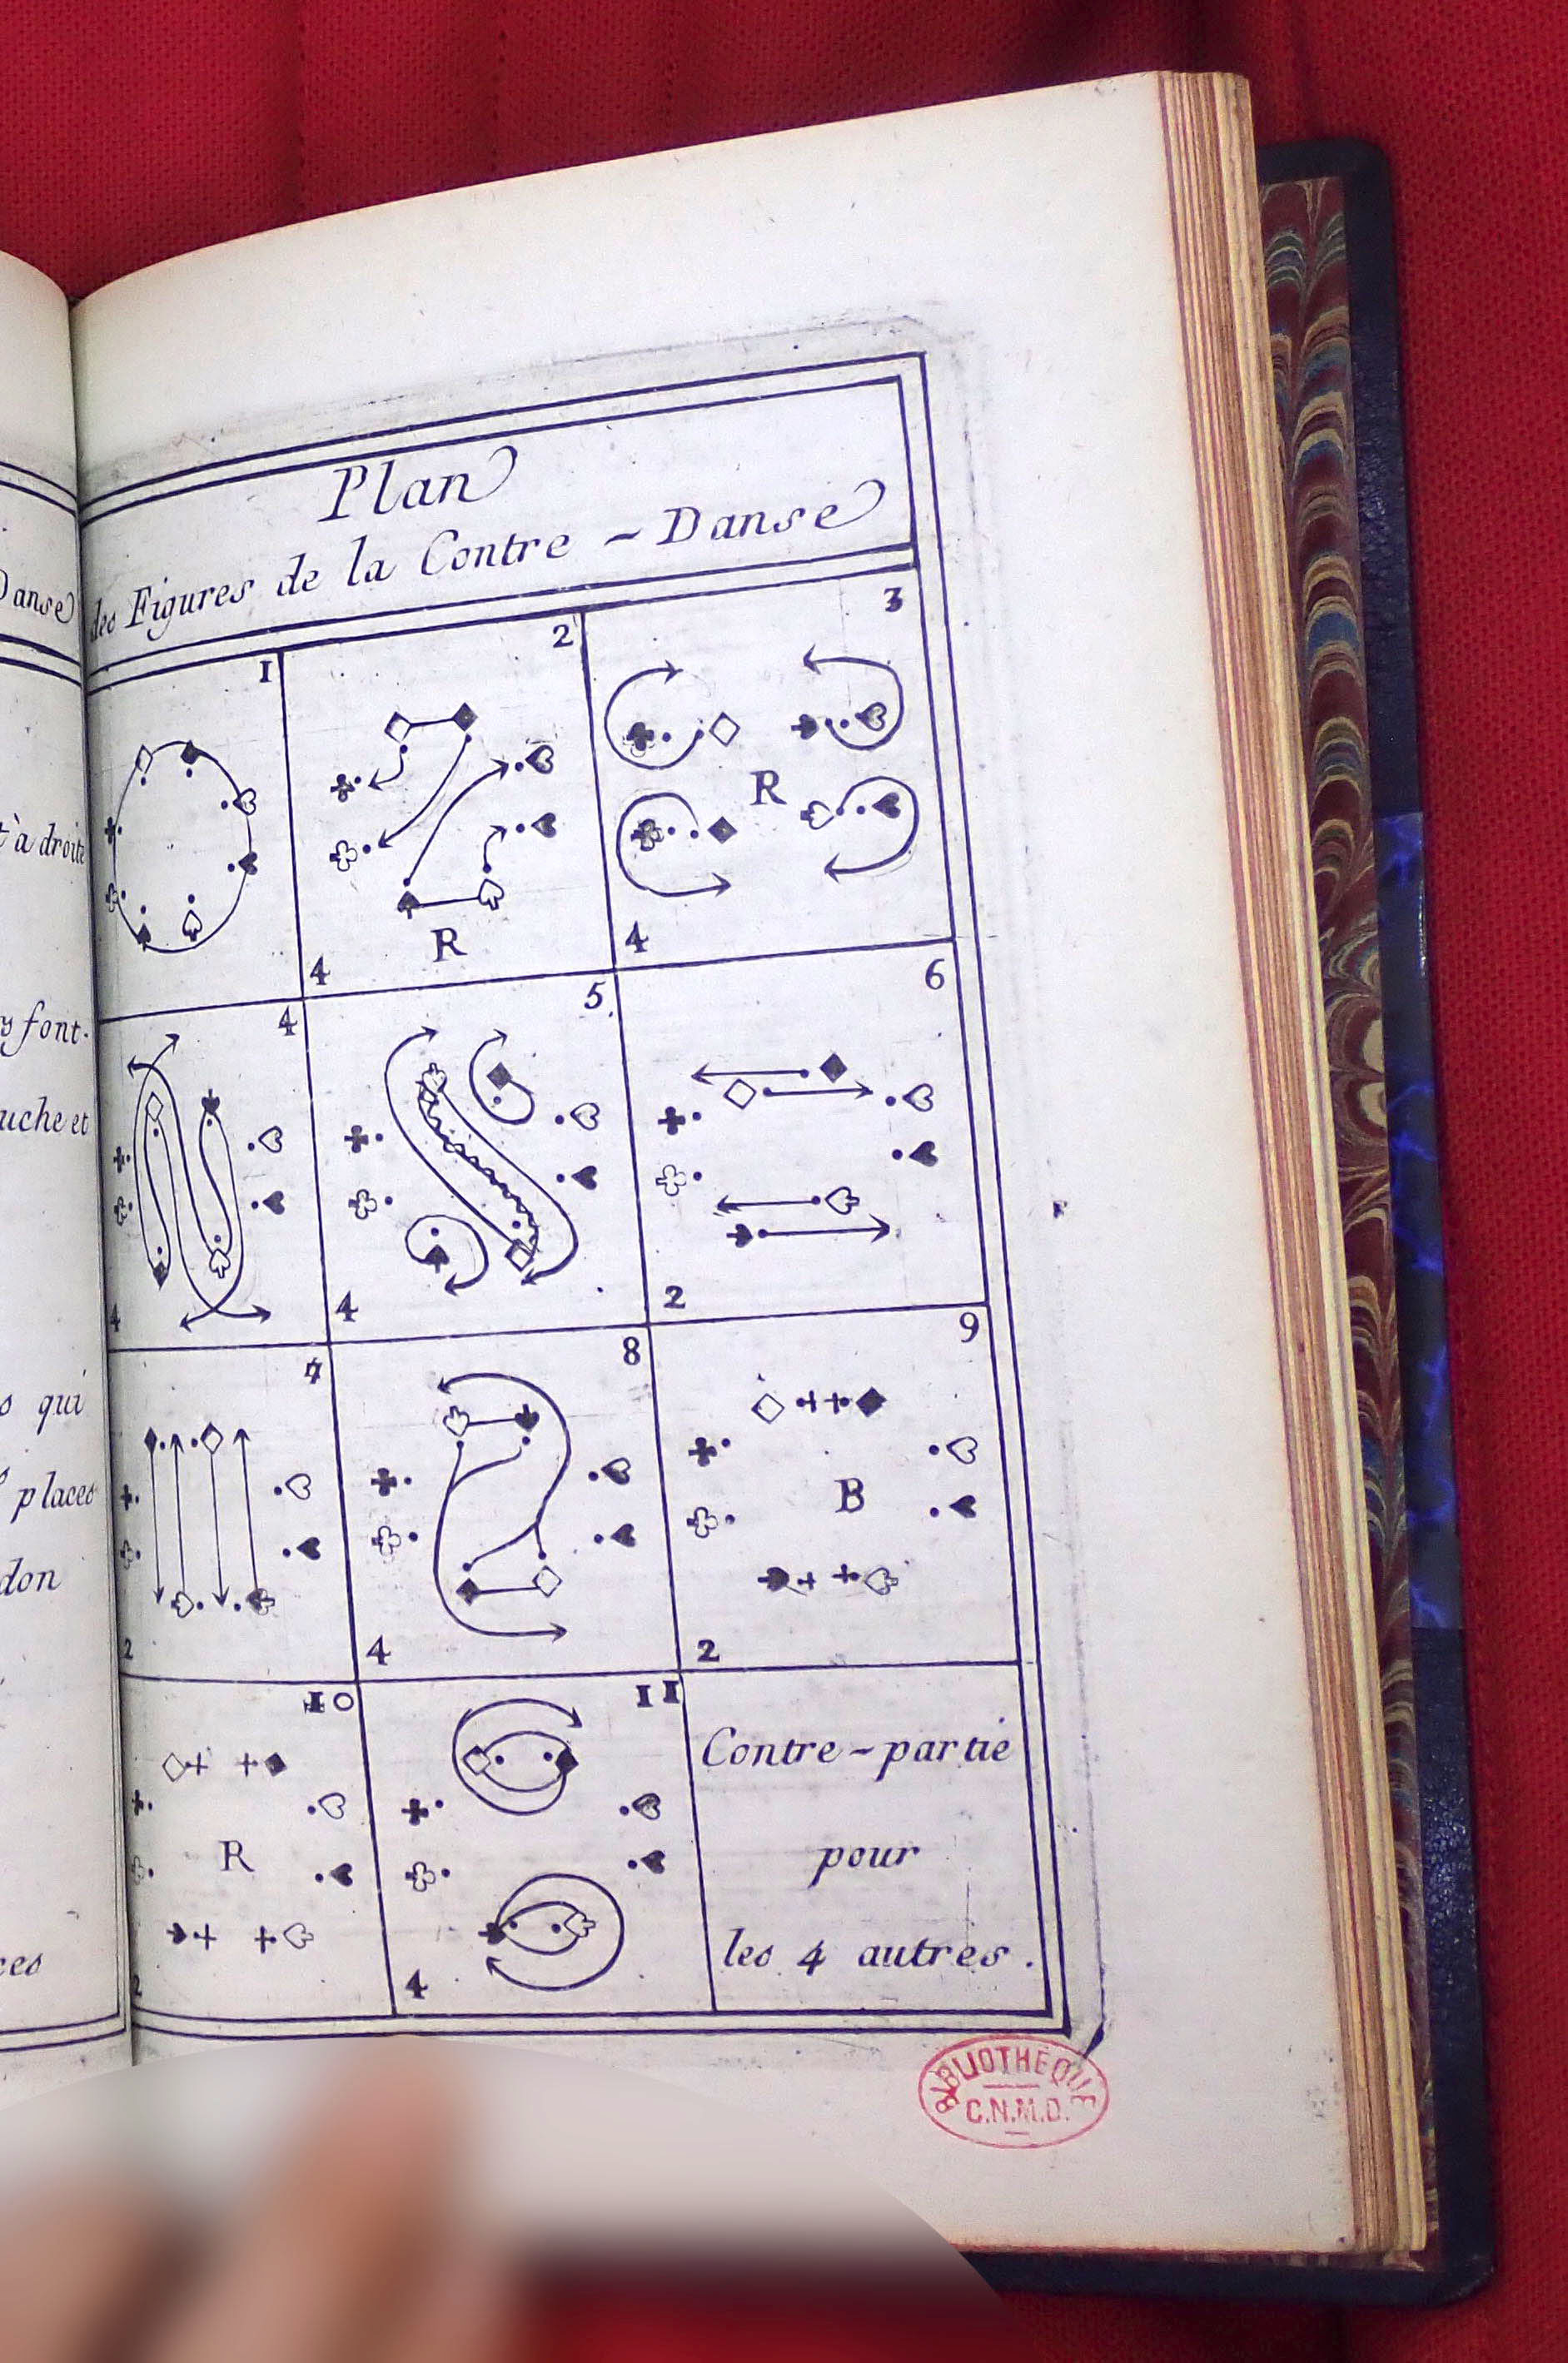 Danse
t à droite
s font-
uche et
s qui
places
don
Plan
des Figures de la Contre-Danse
1
2
3
4
R
R
4
4
5
6
4
4
2
7
8
9
B
2
4
2
10
11
R
2
4
Contre-partie
pour
les 4 autres.
BIBLIOTHÈQUE
C.N.M.D.